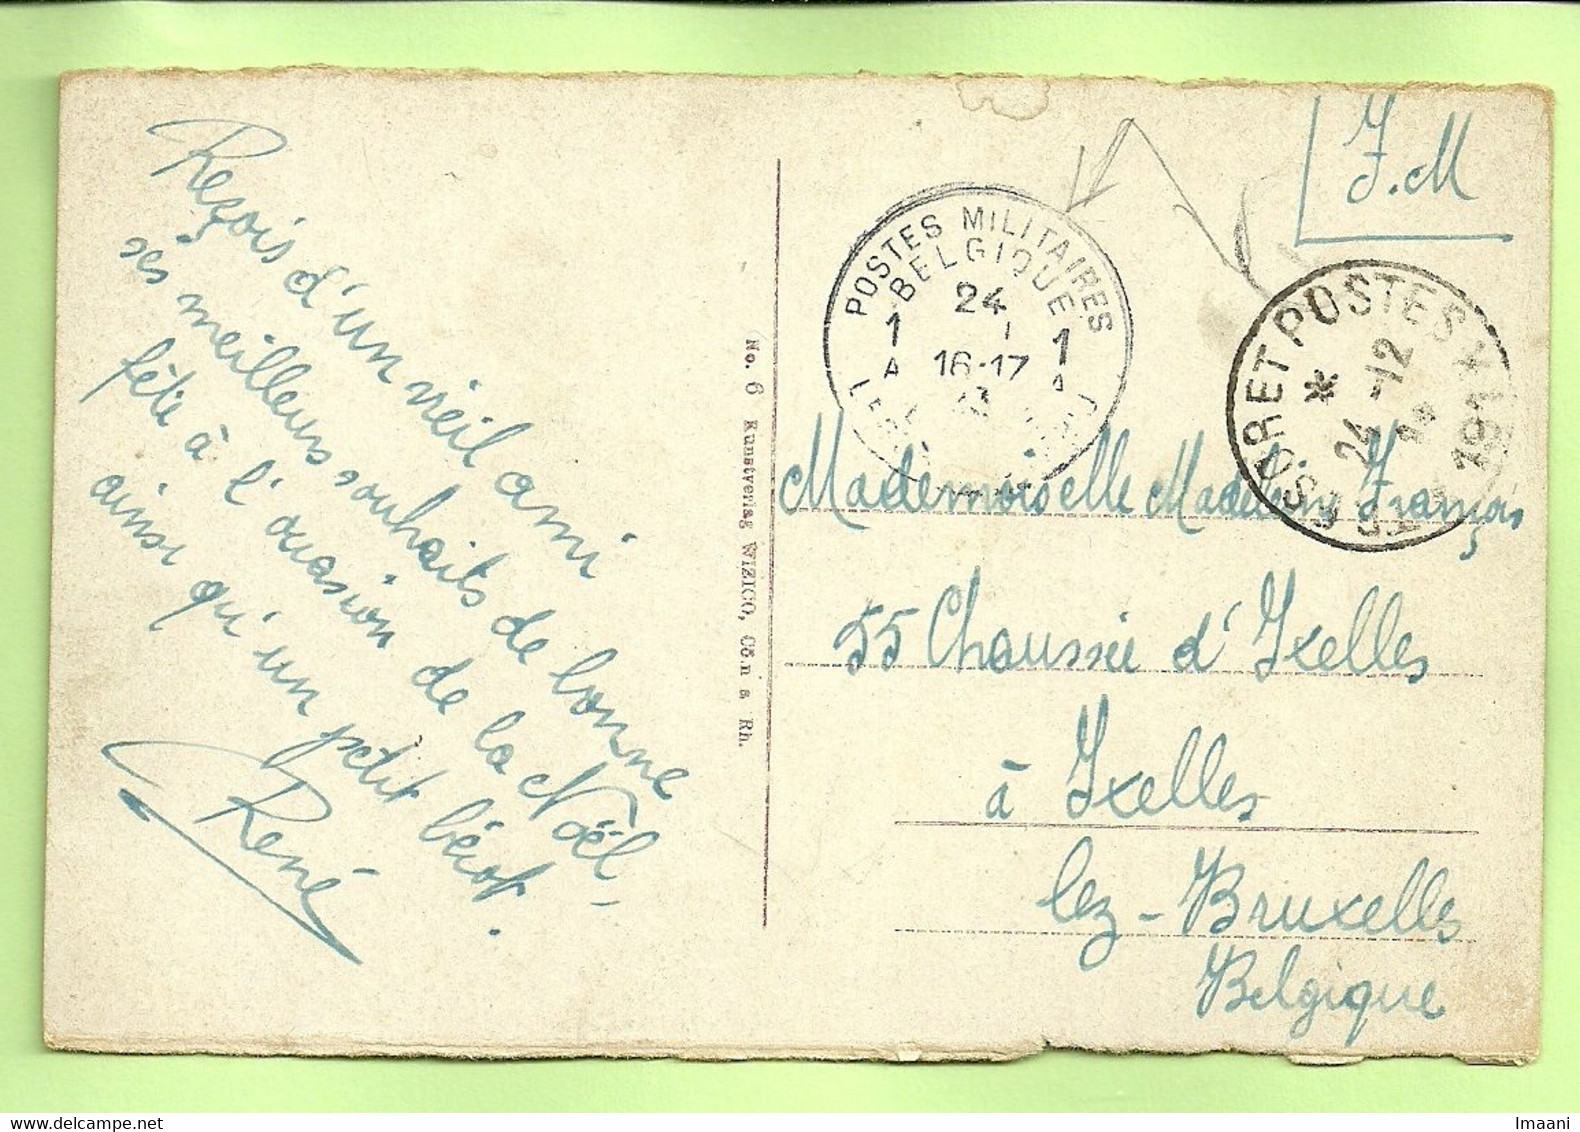 Reçois d'un vieil ami
ses meilleurs souhaits de bonne
fête à l'occasion de la Noël
ainsi qu'un petit bécot.
René
No. 6 Kunstverlag WIZICO, Cöln a Rh.
F.M
POSTES MILITAIRES
BELGIQUE
24
1 1
A 16-17 A
TRESOR ET POSTES
24 -12
191
Mademoiselle Madeleine François
55 Chaussée d'Ixelles
à Ixelles
lez-Bruxelles
Belgique
Imaani